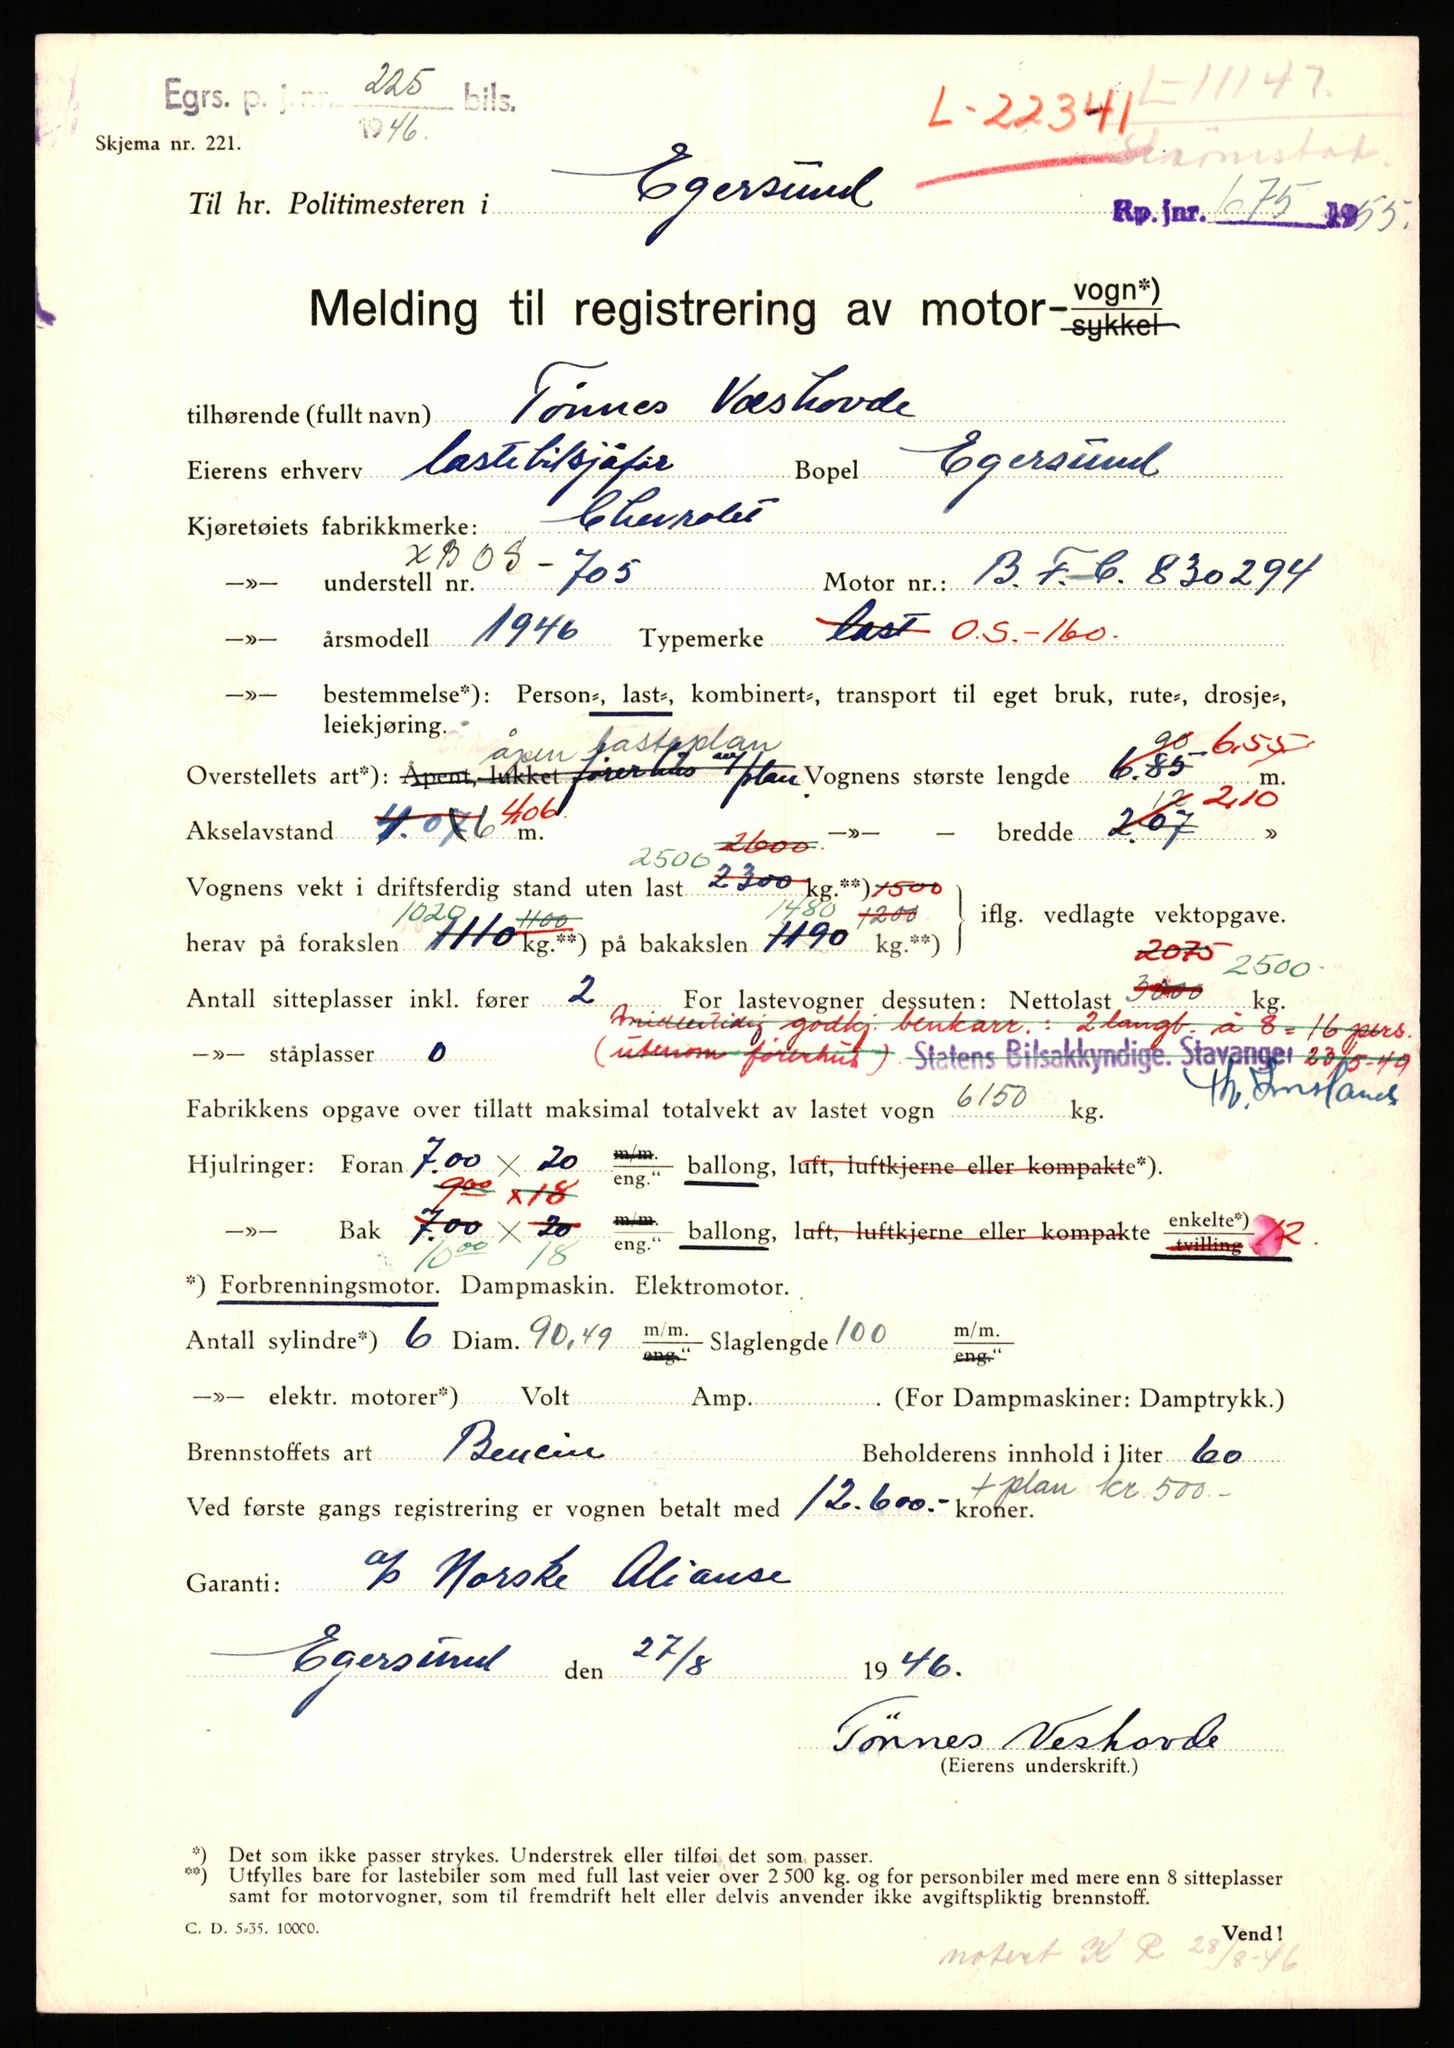 Egrs. p. j. nr. 225 bils.
1946.
L-11147.
L-22341
Skjema nr. 221.
Til hr. Politimesteren i Egersund
Rp. jnr. 675 1955.
Melding til registrering av motor- vogn*)
sykkel
tilhørende (fullt navn) Tønnes Veshovde
Eierens erhverv lastebilsjåfør Bopel Egersund
Kjøretøiets fabrikkmerke: Chevrolet
—»— understell nr. XBOS - 705 Motor nr.: B.F.C. 830294
—»— årsmodell 1946 Typemerke last O.S.-160.
—»— bestemmelse*): Person-, last-, kombinert-, transport til eget bruk, rute-, drosje-,
leiekjøring.
åpen lasteplan
90 6.55
Overstellets art*): Åpent, lukket førerhus m/ plan. Vognens største lengde 6.85 m.
406 12 2,10
Akselavstand 4.07 6 m. —»— — bredde 2.07 »
2500 2600
Vognens vekt i driftsferdig stand uten last 2300 kg.**) 1500
1020 1100 1480 1200
iflg. vedlagte vektopgave.
herav på forakslen 1110 kg.**) på bakakslen 1190 kg.**)
2075 2500
Antall sitteplasser inkl. fører 2 For lastevogner dessuten: Nettolast 3000 kg.
Amidlertidig godkj. benkarr.: 2 langb. à 8 = 16 pers.
—»— ståplasser 0 (utenom førerhus) Statens Bilsakkyndige. Stavanger 23/5-49
Fabrikkens opgave over tillatt maksimal totalvekt av lastet vogn 6150 kg.
Hjulringer: Foran 7.00 × 20 m/m. eng." ballong, luft, luftkjerne eller kompakte*).
9.00 x 18
—»— Bak 7.00 × 20 m/m. eng." ballong, luft, luftkjerne eller kompakte enkelte*) tvilling 12.
10.00 18
*) Forbrenningsmotor. Dampmaskin. Elektromotor.
Antall sylindre*) 6 Diam. 90,49 m/m. eng." Slaglengde 100 m/m. eng."
—»— elektr. motorer*) Volt Amp. . (For Dampmaskiner: Damptrykk.)
Brennstoffets art Bencin Beholderens innhold i liter 60
+ plan kr. 500.-
Ved første gangs registrering er vognen betalt med 12.600.- kroner.
Garanti: a/s Norske Alianse
Egersund den 27/8 1946.
Tønnes Veshovde
(Eierens underskrift.)
*) Det som ikke passer strykes. Understrek eller tilføi det som passer.
**) Utfylles bare for lastebiler som med full last veier over 2 500 kg. og for personbiler med mere enn 8 sitteplasser
samt for motorvogner, som til fremdrift helt eller delvis anvender ikke avgiftspliktig brennstoff.
C. D. 5-35. 10000.
Vend!
notert K R 28/8-46